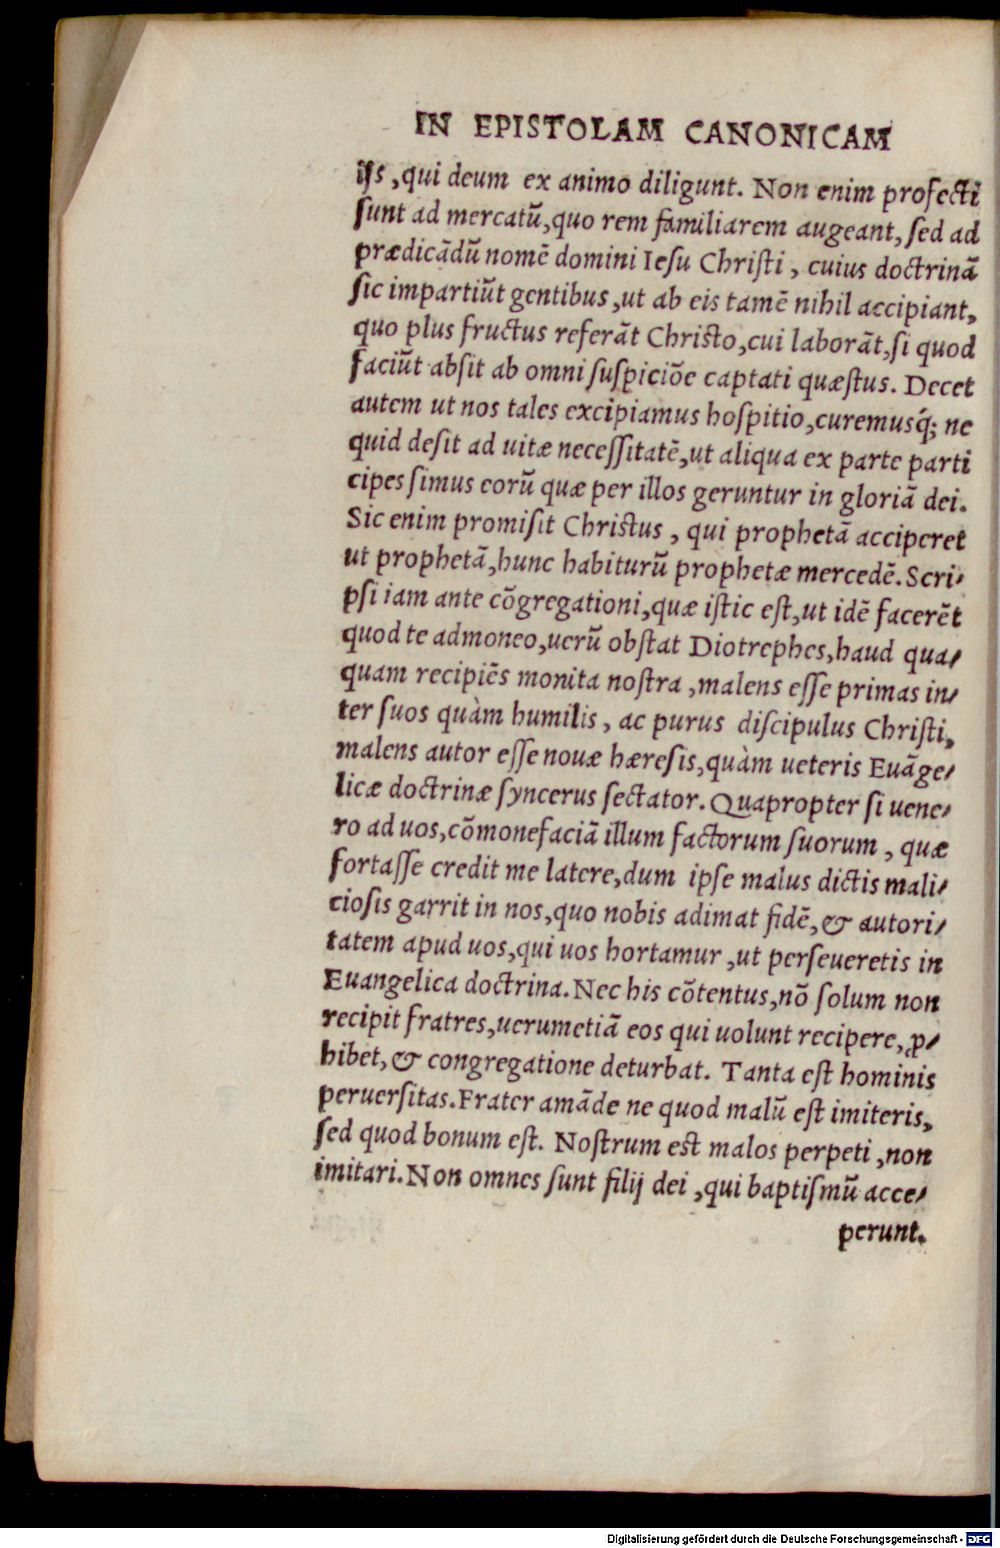 IN EPISTOLAM CANONICAM
ijs, qui deum ex animo diligunt. Non enim profecti
sunt ad mercatū, quo rem familiarem augeant, sed ad
prædicādū nomē domini Iesu Christi, cuius doctrinā
sic impartiūt gentibus, ut ab eis tamē nihil accipiant,
quo plus fructus referāt Christo, cui laborāt, si quod
faciūt absit ab omni suspiciōe captati quæstus. Decet
autem ut nos tales excipiamus hospitio, curemusq́; ne
quid desit ad uitæ necessitatē, ut aliqua ex parte parti
cipes simus eorū quæ per illos geruntur in gloriā dei.
Sic enim promisit Christus, qui prophetā acciperet
ut prophetā, hunc habiturū prophetæ mercedē. Scri-
psi iam ante cōgregationi, quæ istic est, ut idē facerēt
quod te admoneo, uerū obstat Diotrephes, haud qua-
quam recipiēs monita nostra, malens esse primas in-
ter suos quàm humilis, ac purus discipulus Christi,
malens autor esse nouæ hæresis, quàm ueteris Euāge-
licæ doctrinæ syncerus sectator. Quapropter si uene-
ro ad uos, cōmonefaciā illum factorum suorum, quæ
fortasse credit me latere, dum ipse malus dictis mali-
ciosis garrit in nos, quo nobis adimat fidē, & autori-
tatem apud uos, qui uos hortamur, ut perseueretis in
Euangelica doctrina. Nec his cōtentus, nō solum non
recipit fratres, uerumetiā eos qui uolunt recipere, ꝓ-
hibet, & congregatione deturbat. Tanta est hominis
peruersitas. Frater amāde ne quod malū est imiteris,
sed quod bonum est. Nostrum est malos perpeti, non
imitari. Non omnes sunt filij dei, qui baptismū acce-
perunt.
Digitalisierung gefördert durch die Deutsche Forschungsgemeinschaft - DFG